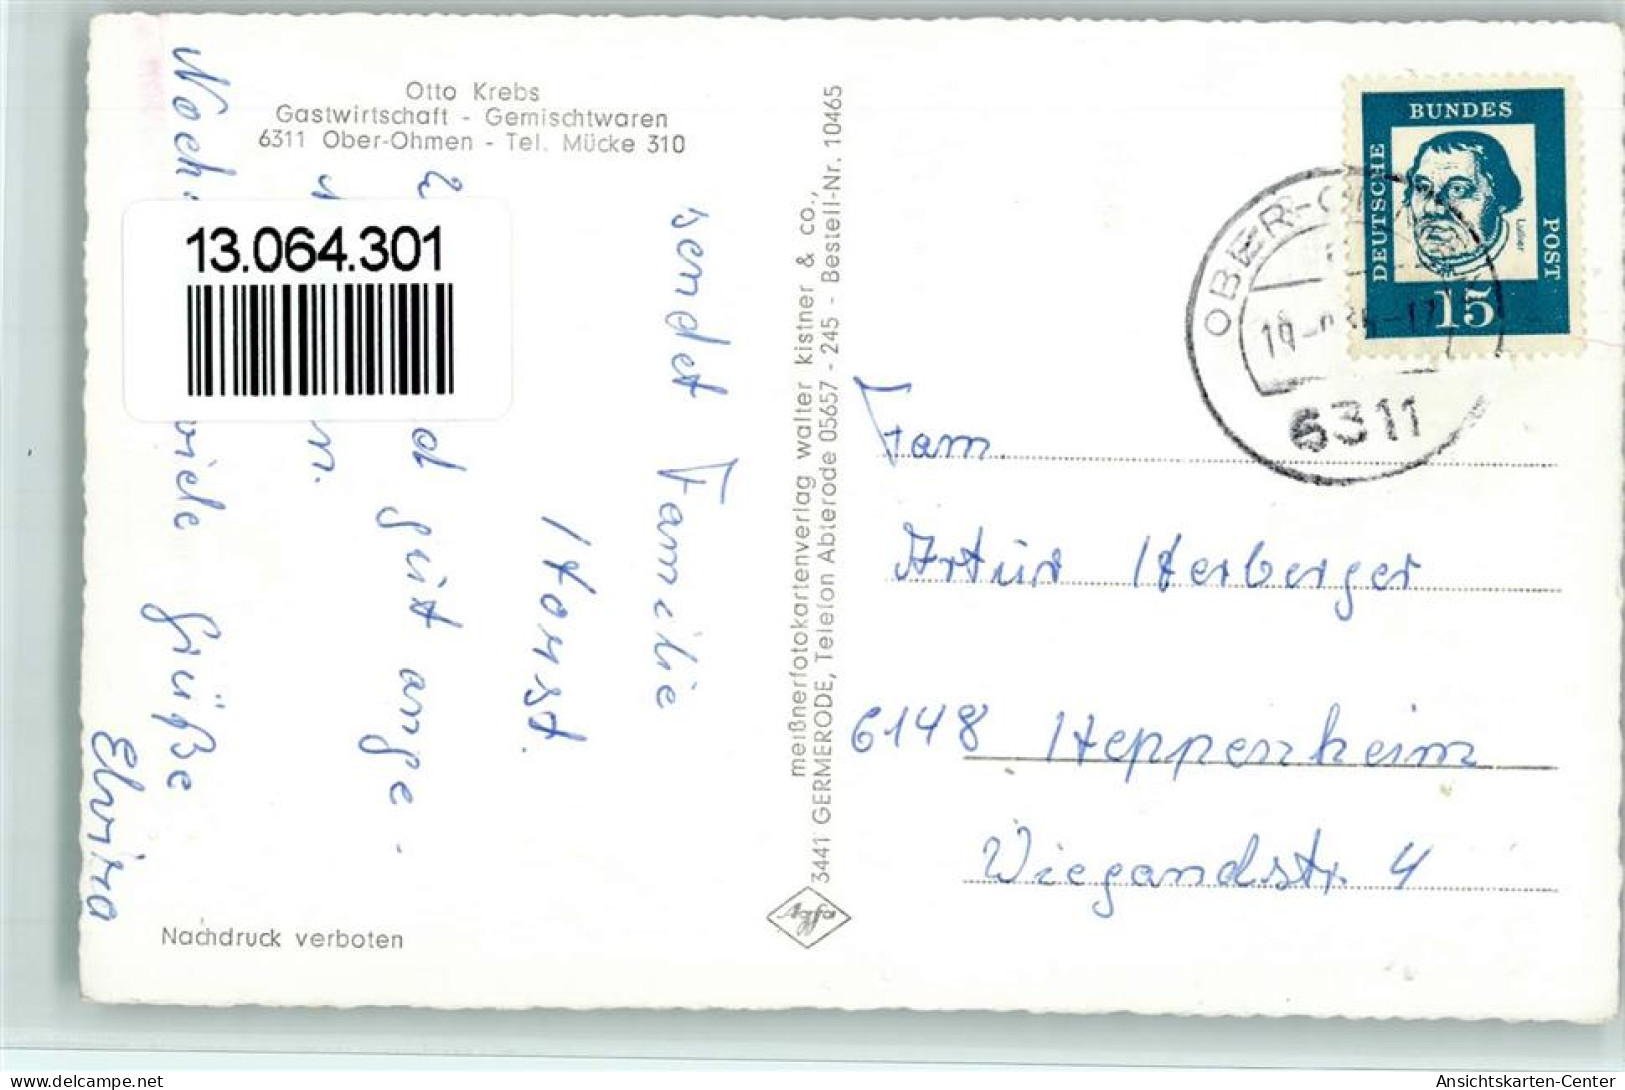 Otto Krebs
Gastwirtschaft - Gemischtwaren
6311 Ober-Ohmen - Tel. Mücke 310
13.064.301
sendet Familie
Horst.
d gut ange-
n.
Noch
viele Grüße
Elvira
Nachdruck verboten
meißnerfotokartenverlag walter kistner & co.,
3441 GERMERODE, Telefon Abterode 05657 - 245 - Bestell-Nr. 10465
DEUTSCHE
BUNDES
POST
Luther
15
OBER-
6311
Fam.
Artur Herberger
6148 Heppenheim
Wiegandstr. 4
Ansichtskarten-Center